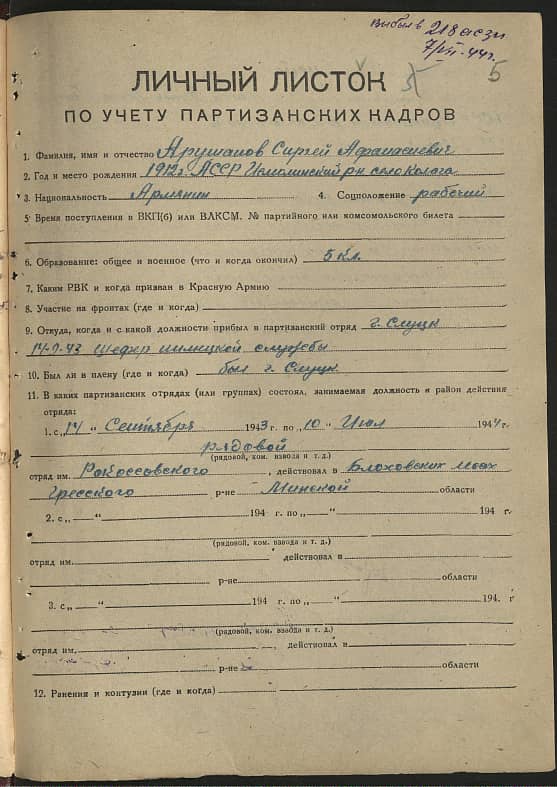 Выбыл в 218 асзп
7/VII-44г.
5
ЛИЧНЫЙ ЛИСТОК
ПО УЧЕТУ ПАРТИЗАНСКИХ КАДРОВ
1. Фамилия, имя и отчество Арушанов Сиргей Афанасиевич
2. Год и место рождения 1912г. АССР рн село Колага
3. Национальность Армянин 4. Соцположение рабочий
5. Время поступления в ВКП(б) или ВЛКСМ. № партийного или комсомольского билета
6. Образование: общее и военное (что и когда окончил) 5 кл.
7. Каким РВК и когда призван в Красную Армию
8. Участие на фронтах (где и когда)
9. Откуда, когда и с какой должности прибыл в партизанский отряд г. Слуцк
14-9-43 Шефер нимицкой службы
10. Был ли в плену (где и когда) был г. Слуцк.
11. В каких партизанских отрядах (или группах) состоял, занимаемая должность и район действия
отряда:
1. с „14" Сентября 1943 г. по „10" Июл 1944 г.
рядовой
(рядовой, ком. взвода и т. д.)
отряд им. Рокоссовского, действовал в Блоховских моох
Гресского р-не Минской области
2. с „ " 194 г. по „ " 194 г.
(рядовой, ком. взвода и т. д.)
отряд им. действовал в
р-не области
3. с „ " 194 г. по „ " 194 г
(рядовой, ком. взвода и т. д.)
отряд им. , действовал в
р-не области
12. Ранения и контузии (где и когда)